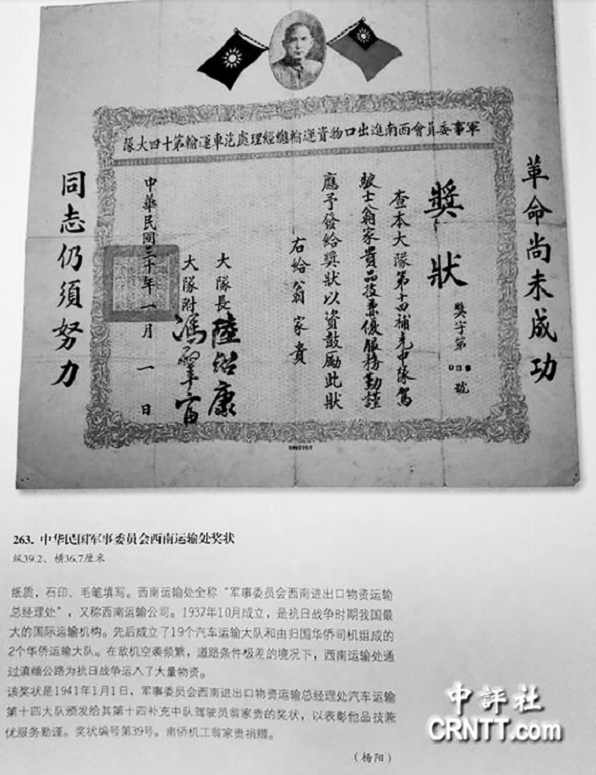 革命尚未成功
軍事委員會西南進出口物資運輸總經理處汽車運輸第十四大隊
獎狀
獎字第039號
查本大隊第十四補充中隊駕
駛士翁家貴品技兼優服務勤謹
應予發給獎狀以資鼓勵此狀
右給翁家貴
大隊長 陸紹康
大隊附 馮
中華民國三十年一月一日
同志仍須努力
263. 中华民国军事委员会西南运输处奖状
纵39.2、横36.7厘米
纸质，石印、毛笔填写。西南运输处全称“军事委员会西南进出口物资运输
总经理处”，又称西南运输公司。1937年10月成立，是抗日战争时期我国最
大的国际运输机构。先后成立了19个汽车运输大队和由归国华侨司机组成的
2个华侨运输大队。在敌机空袭频繁，道路条件极差的境况下，西南运输处通
过滇缅公路为抗日战争运入了大量物资。
该奖状是1941年1月1日，军事委员会西南进出口物资运输总经理处汽车运输
第十四大队颁发给其第十四补充中队驾驶员翁家贵的奖状，以表彰他品技兼
优服务勤谨。奖状编号第39号。南侨机工翁家贵捐赠。
（杨阳）
中評社
CRNTT.com